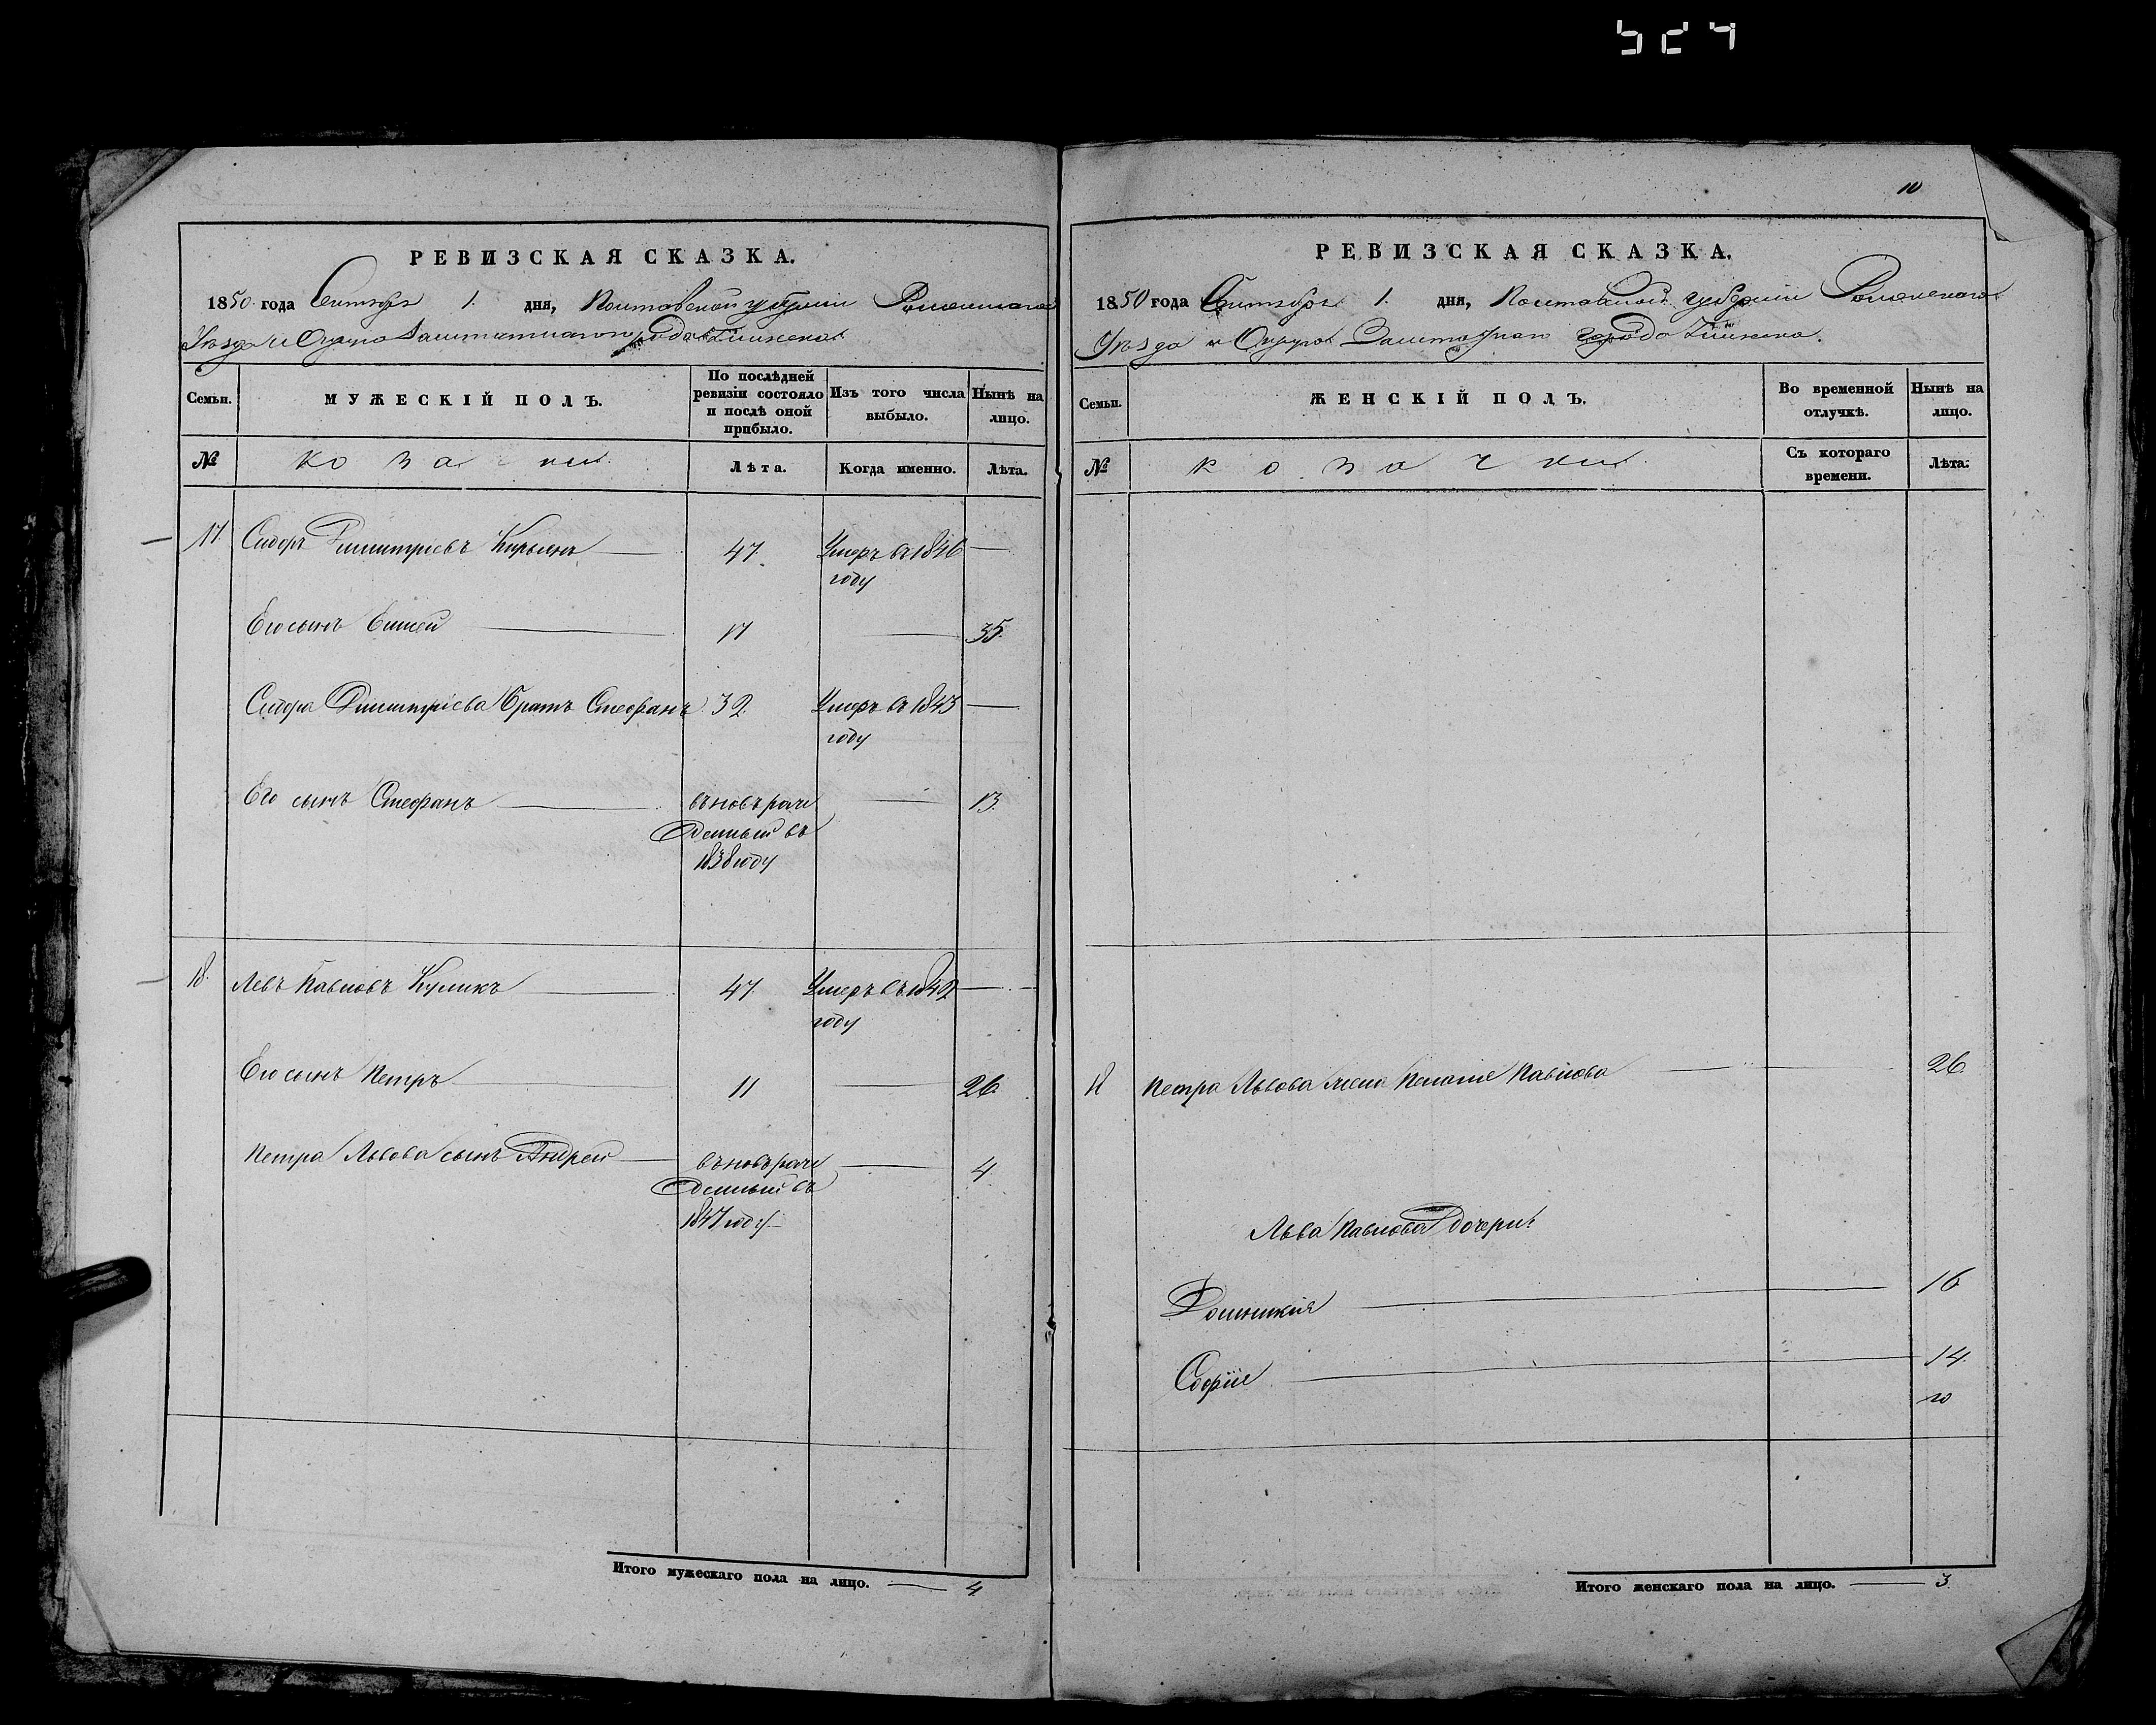 524
РЕВИЗСКАЯ СКАЗКА.
1850 года Сентября 1. дня, Полтавской губернии Роменскаго
Уѣзда и Округа Заштатнаго города Глинска
Семьи. МУЖЕСКІЙ ПОЛЪ. По послѣдней ревизіи состояло и послѣ оной прибыло. Изъ того числа выбыло. Нынѣ на лицо.
№ козаки Лѣта. Когда именно. Лѣта.
17. Сидоръ Димитріевъ 47. Умеръ въ 1846 году —
Его сынъ 17 — 35.
Сидора Димитріева братъ Стефанъ 32. Умеръ въ 1843 году —
Его сынъ Стефанъ вновь рожденный въ 1838 году — 13.
18. Левъ Павловъ Куликъ 47. Умеръ въ 1842 году —
Его сынъ Петръ 11 — 26.
Петра Львова сынъ Андрей вновь рожденный въ 1847 году — 4.
Итого мужескаго пола на лицо. — 4
10
РЕВИЗСКАЯ СКАЗКА.
1850 года Сентября 1. дня, Полтавской губерніи Роменскаго
Уѣзда и Округа Заштатнаго города Глинска.
Семьи. ЖЕНСКІЙ ПОЛЪ. Во временной отлучкѣ. Нынѣ на лицо.
№ козачки Съ котораго времени. Лѣта:
18 Петра Львова жена Павлова — 26.
Льва Павлова дочери:
Домникія — 16
Софія — 14.
Итого женскаго пола на лицо. — 3.